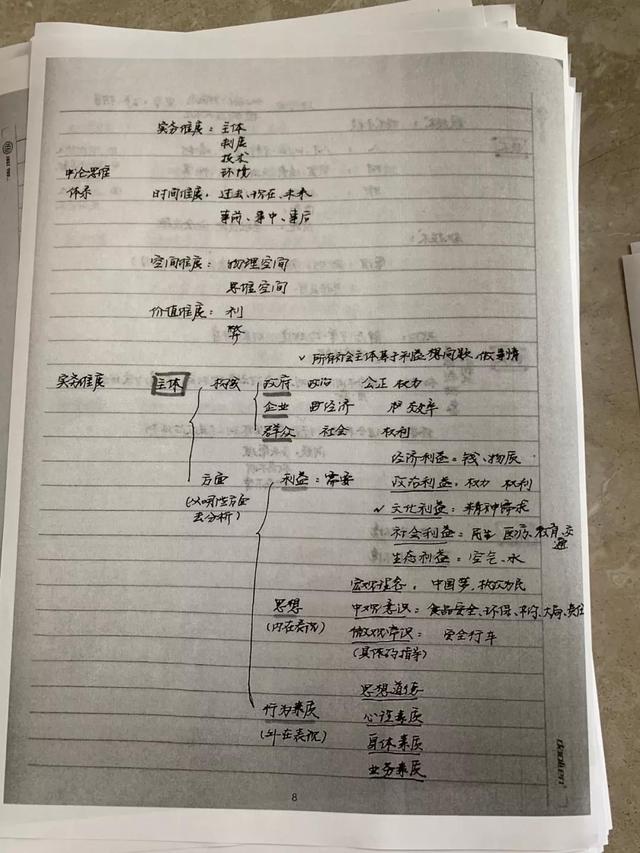 实务维度：主体
制度
技术
申论思维 环境
体系 时间维度：过去、现在、未来
事前、事中、事后
空间维度：物理空间
思维空间
价值维度：利
弊
✓所有社会主体基于利益想问题、做事情
实务维度 主体 构成 政府 政治 公正 权力
企业 经济 效率
群众 社会 权利
经济利益：钱、物质
方面 利益：需要 政治利益：权力 权利
(从哪些方面 ✓文化利益：精神需求
去分析) 社会利益：民生 医疗、教育、交通
生态利益：空气、水
宏观理念：中国梦、执政为民
思想 中观意识：食品安全、环保、大局、责任
(内在表现) 微观常识：安全行车
(具体的指导)
思想道德
行为素质 心理素质
(外在表现) 身体素质
业务素质
8